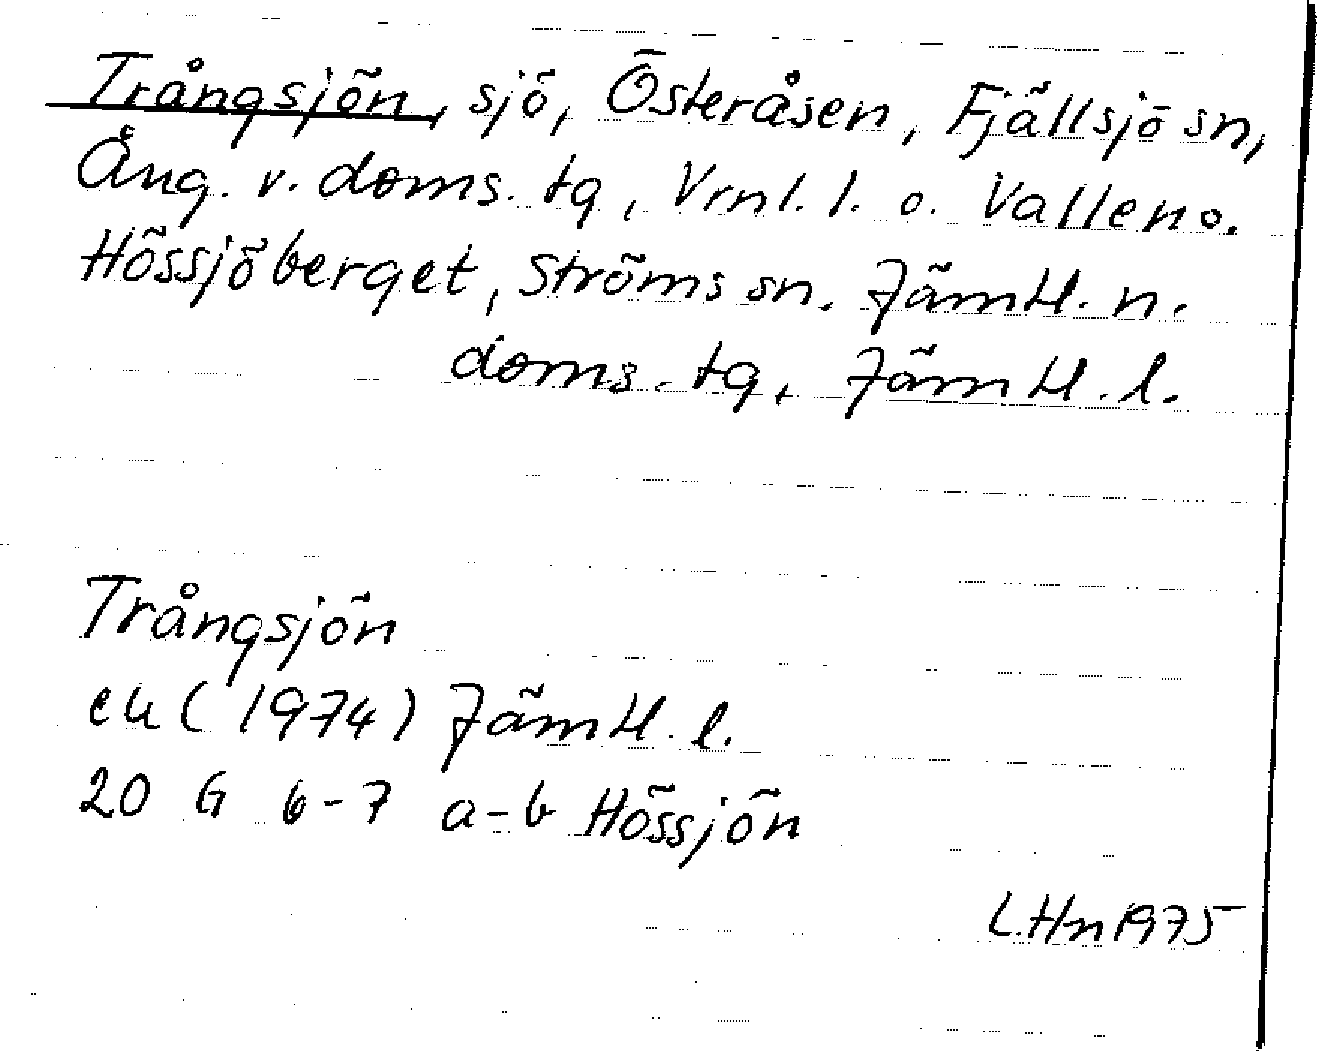 Trångsjön, sjö, Österåsen, Fjällsjö sn,
Ång. v. doms. tg, Vrnl. l. o. Vallen o.
Hössjöberget, Ströms sn. Jämtl. n.
doms. tg, Jämtl. l.
Trångsjön
ek (1974) Jämtl. l.
20 G 6-7 a-b Hössjön
L.Hn 1975